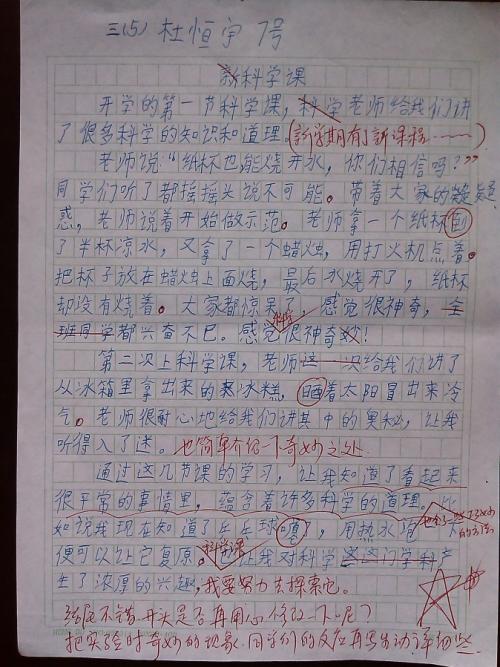 三(5) 杜恒宇 7号
新科学课
开学的第一节科学课，科学老师给我们讲
了很多科学的知识和道理。(新学期有了新课程……)
老师说：“纸杯也能烧开水，你们相信吗？”
同学们听了都摇摇头说不可能。带着大家的疑
惑，老师说着开始做示范。老师拿一个纸杯倒
了半杯凉水，又拿了一个蜡烛，用打火机点着。
把杯子放在蜡烛上面烧，最后水烧开了，纸杯
却没有烧着。大家都惊呆了，感觉很神奇，全
班同学都兴奋不已。感觉科学很神奇妙！
第二次上科学课，老师这一次给我们讲了
从冰箱里拿出来的冰糕，晒着太阳冒出来冷
气。老师很耐心地给我们讲其中的奥秘，让我
听得入了迷。也简单介绍一下奇妙之处
通过这几节课的学习，让我知道了看起来
很平常的事情里，蕴含着许多科学的道理。比
如说我现在知道了乒乓球，用热水
便可以让它复原。科学课让我对科学这门学科产
生了浓厚的兴趣，我要努力去探索它。
结尾不错，开头是否再用心修改一下呢？
把实验时奇妙的现象、同学们的反应再写生动详细些